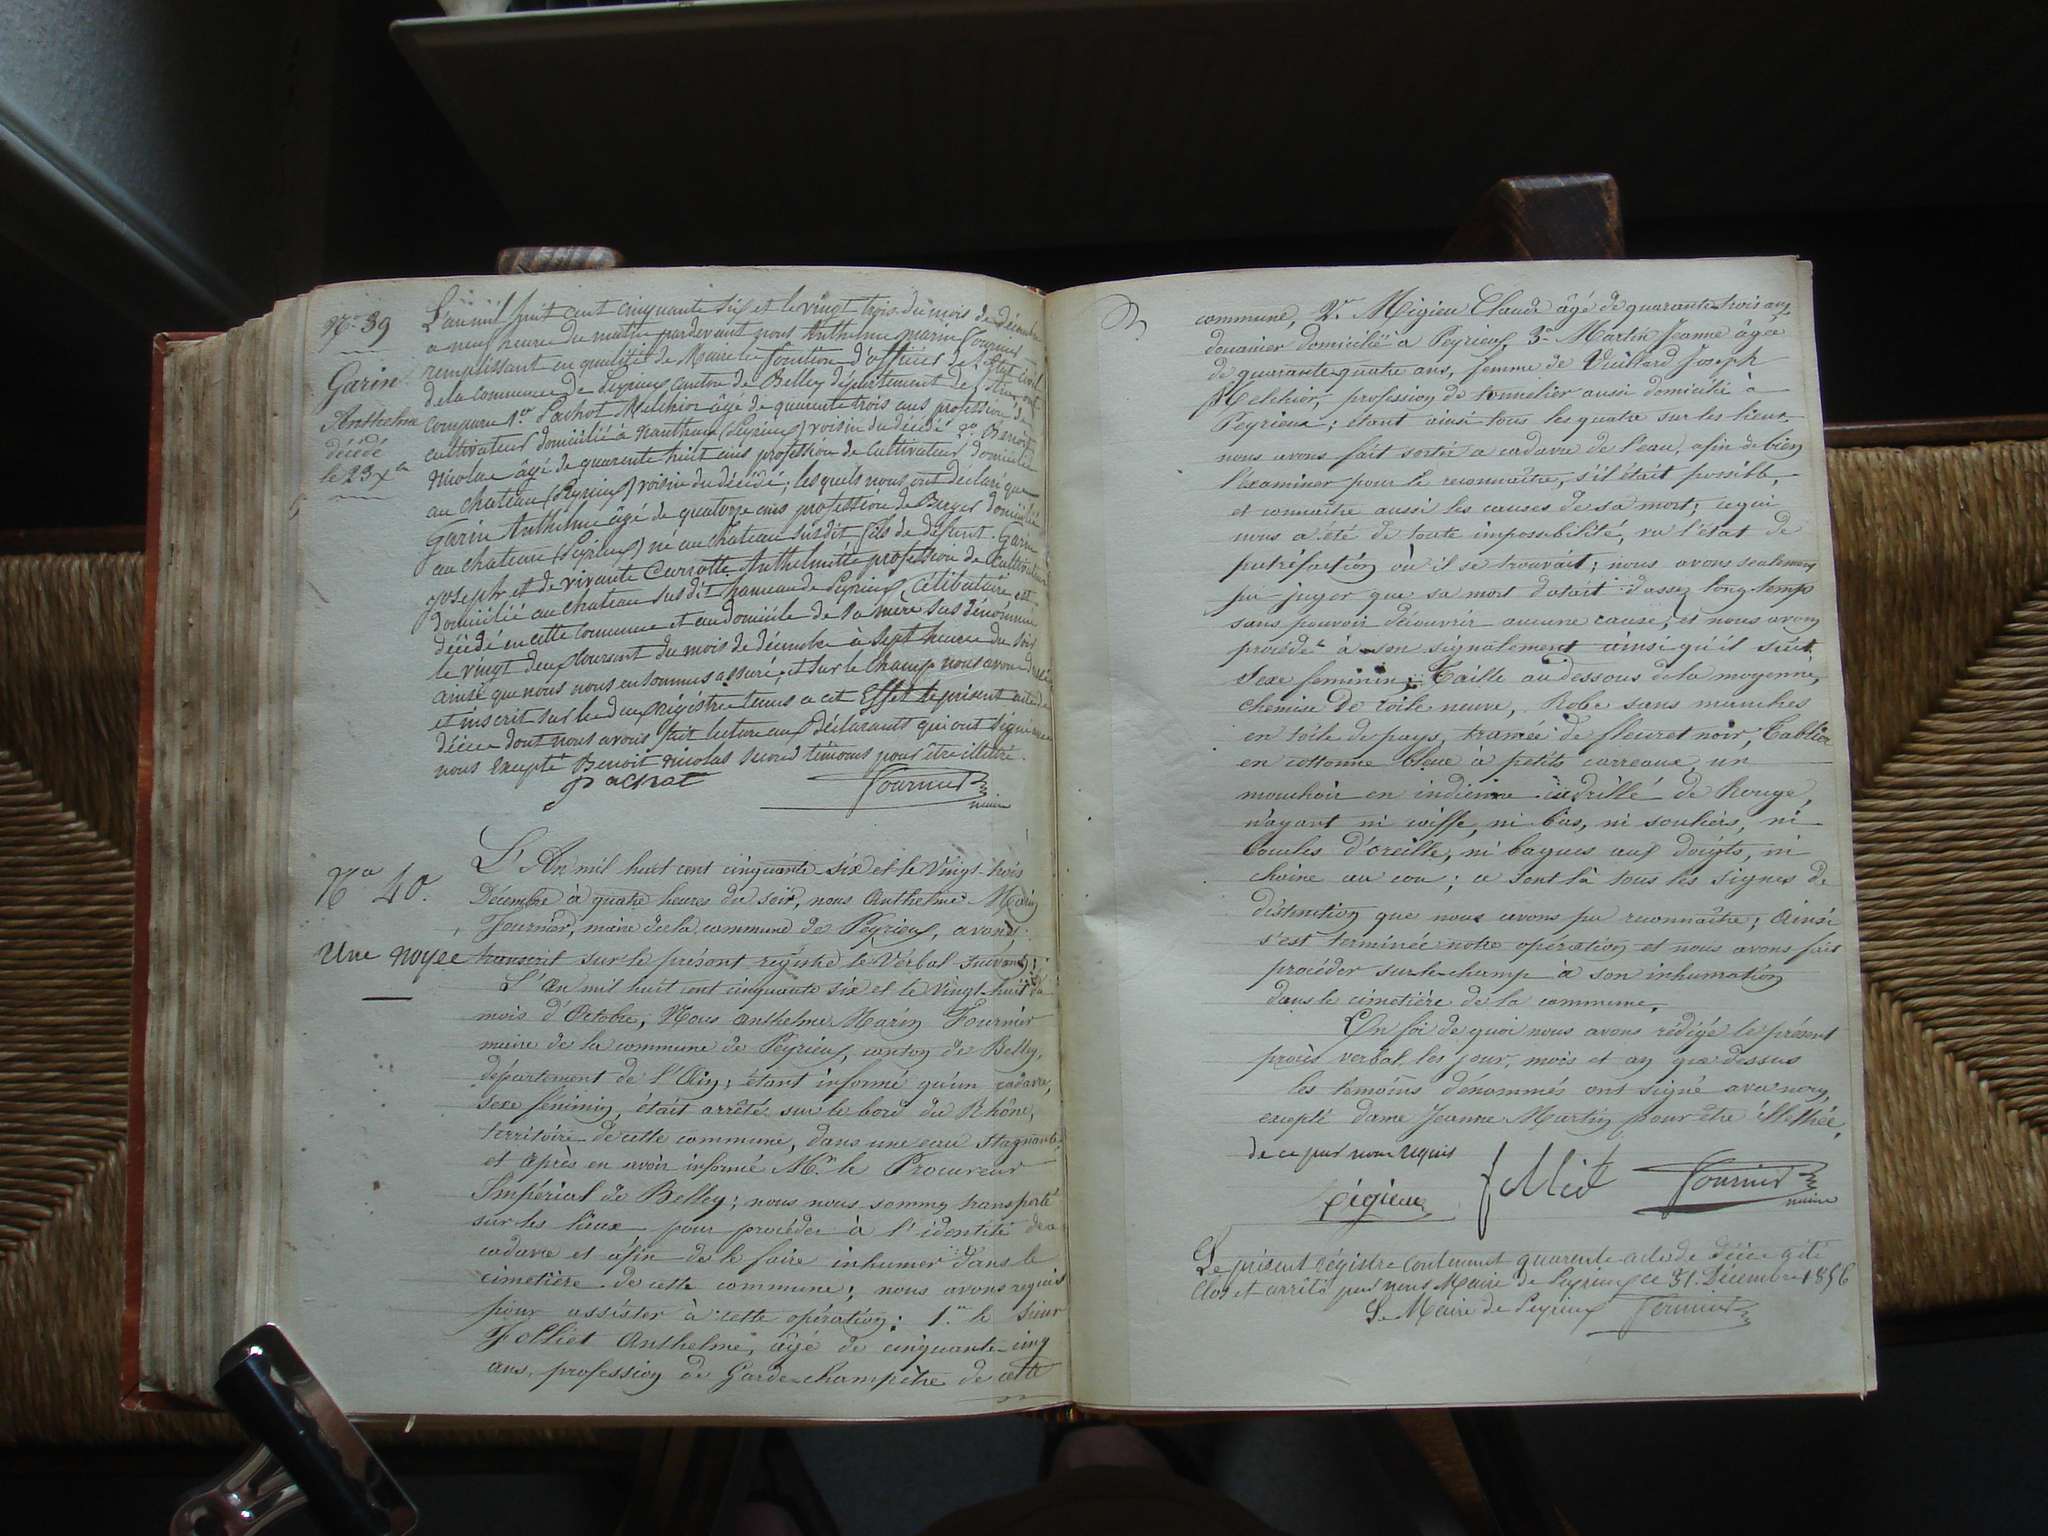 No 39
Garin
Anthelme
décédé
le 23 Xbre
L'an mil huit cent cinquante six et le vingt trois du mois de décembre
a neuf heure du matin pardevant nous Anthelme Marin Fournier
remplissant en qualité de Maire les fonction d'officier de l'Etat civil
de la commune de Peyrieux canton de Belley département de l'Ain, ont
comparu 1er Pachot Melchior âgé de quarente trois ans profession de
cultivateur domicilié à Nanthuy (Peyrieux) voisin du décédé 2o Benoit
Nicolas âgé de quarente huit ans profession de cultivateur domicilié
au chateau (Peyrieux) voisin du décédé; lesquels nous ont déclaré que
Garin Anthelme âgé de quatorze ans profession de Berger domicilié
au chateau (Peyrieux) né au chateau susdit, fils de défunt Garin
Joseph et de vivante Carrotte Anthelmette profession de Cultivateur
domicilié au chateau susdit hameau de Peyrieux, Célibataire est
décédé en cette commune et au domicile de sa mère sus dénommée
le vingt deux Courant du mois de décembre à Sept heures du soir
ainsi que nous nous en sommes assuré; et sur le champ nous avons dressé
et inscrit sur les deux régistre tenus a cet Effet le présent acte de
décès dont nous avons fait lecture aux déclarants qui ont signé avec
nous excepté Benoit Nicolas second témoins pour être illettré.
Pachot Fournier
maire
No 40.
Une noyée
L'An mil huit cent cinquante-six et le Vingt-trois
Décembre à quatre heures du soir, nous Anthelme Marin
Fournier, maire de la commune de Peyrieux, avons
transcrit sur le présent régistre le Verbal suivant:
L'an mil huit cent cinquante six et le Vingt-huit du
mois d'Octobre, Nous Anthelme Marin Fournier
maire de la commune de Peyrieux, canton de Belley,
département de l'Ain; étant informé qu'un cadavre,
sexe féminin, était arrêté sur le bord du Rhône,
territoire de cette commune, dans une eau stagnante
et après en avoir informé Mr. le Procureur
Impérial de Belley; nous nous sommes transporté
sur les lieux pour procéder à l'identité de ce
cadavre et afin de le faire inhumer dans le
cimetière de cette commune; nous avons requis
pour assister à cette opération: 1er le Sieur
Felliet Anthelme, âgé de cinquante-cinq
ans, profession de Garde-champêtre de cette
commune, 2e Migieu Claude âgé de quarante-trois ans
douanier domicilié a Peyrieux, 3e Martin Jeanne âgée
de quarante-quatre ans, femme de Vuillard Joseph
Melchior, profession de tonnelier aussi domicilié a
Peyrieux; étant ainsi tous les quatre sur les lieux
nous avons fait sortir ce cadavre de l'eau, afin de bien
l'examiner pour le reconnaître, s'il était possible,
et connaître aussi les causes de sa mort; ce qui
nous a été de toute impossibilité, vu l'état de
putréfaction où il se trouvait; nous avons seulement
pu juger que sa mort datait d'assez long-temps
sans pouvoir découvrir aucune cause; et nous avons
procédé à son signalement ainsi qu'il suit.
Sexe feminin; Taille au dessous de la moyenne,
chemise de toile neuve, Robe sans manches
en toile de pays, tramée de fleuret noir, Tablier
en cottonne bleue à petits carreaux, un
mouchoir en indienne cadrillé de Rouge,
n'ayant ni coiffe, ni bas, ni souliers, ni
boucles d'oreille, ni bagues aux doigts, ni
chaine au cou; ce sont là tous les signes de
distinction que nous avons pu reconnaître; ainsi
s'est terminée notre opération et nous avons fait
procéder sur-le-champ à son inhumation
dans le cimetière de la commune.
En foi de quoi nous avons rédigé le présent
procès verbal les jour, mois et an que dessus
les témoins dénommés ont signé avec nous,
excepté dame Jeanne Martin pour être illettrée,
de ce par nous requis
Migieu Felliet Fournier
maire
Le présent régistre contenant quarente actes de décès a été
Clos et arrêté par nous Maire de Peyrieux ce 31 Décembre 1856
Le Maire de Peyrieux Fournier